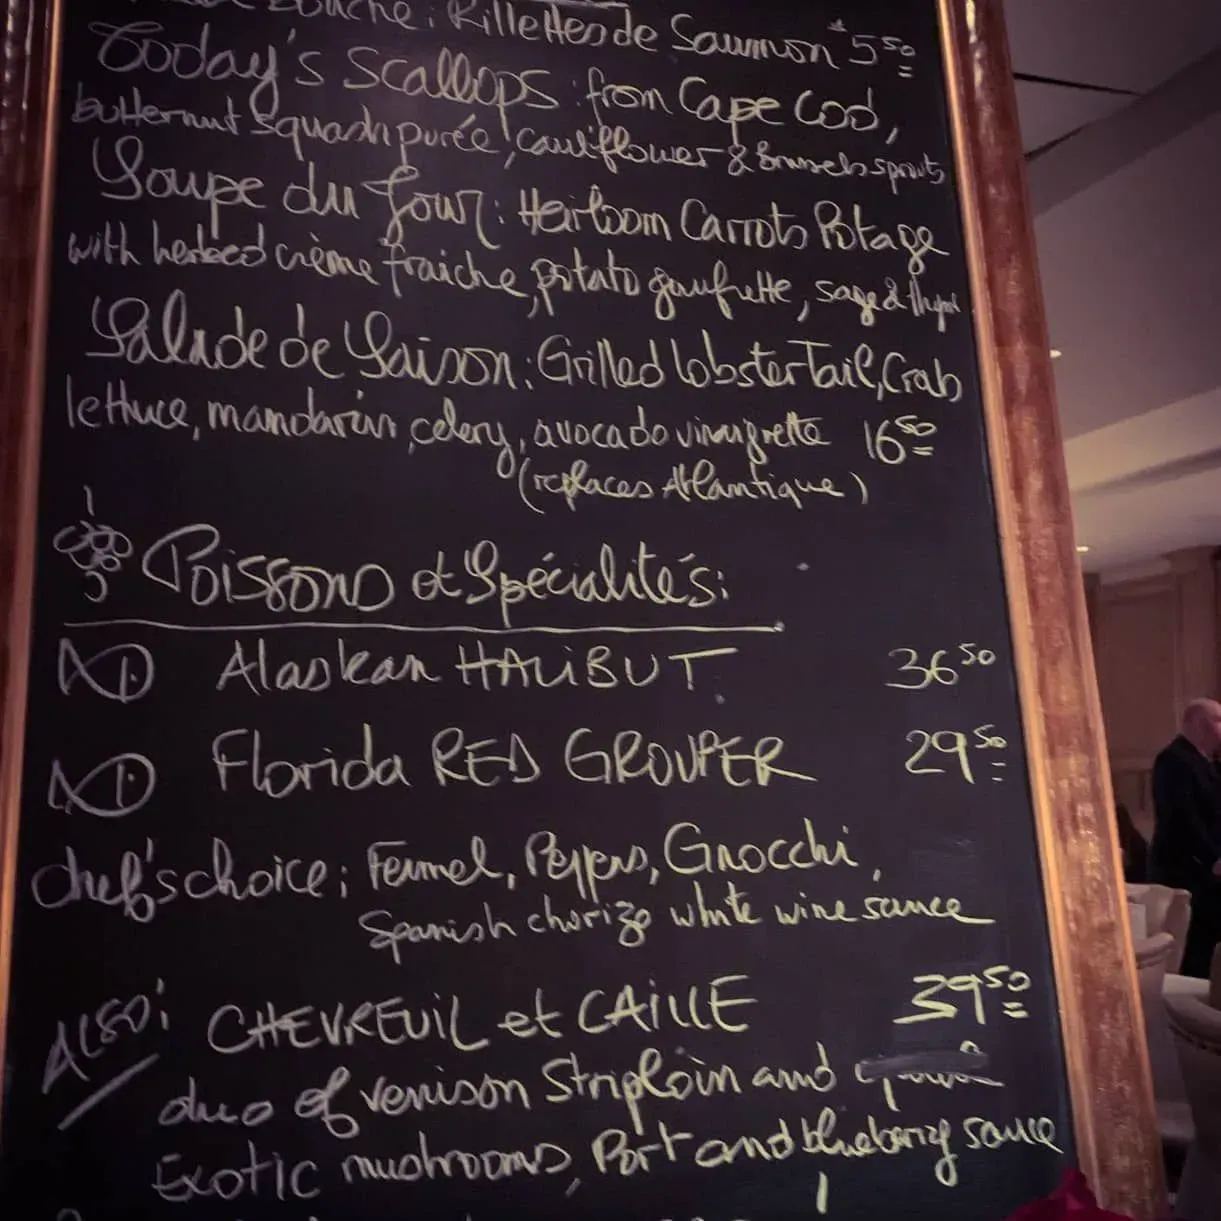 Rillettes de Saumon $5.50
Today's Scallops: from Cape Cod,
butternut squash purée, cauliflower & brussels sprouts
Soupe du Jour: Heirloom Carrots Potage
with herbed crème fraiche, potato gaufrette, sage & thyme
Salade de Saison: Grilled lobster Tail, Crab
lettuce, mandarin, celery, avocado vinaigrette 16.50
(replaces Atlantique)
Poissons et Spécialités:
Alaskan HALIBUT 36.50
Florida RED GROUPER 29.50
chef's choice: Fennel, Peppers, Gnocchi,
Spanish chorizo white wine sauce
ALSO: CHEVREUIL et CAILLE 39.50
duo of venison Striploin and
Exotic mushrooms, Port and blueberry sauce